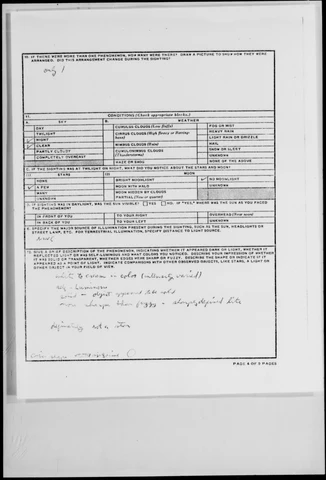 10. IF THERE WERE MORE THAN ONE PHENOMENON, HOW MANY WERE THERE? DRAW A PICTURE TO SHOW HOW THEY WERE
ARRANGED. DID THIS ARRANGEMENT CHANGE DURING THE SIGHTING?
only 1
11. CONDITIONS (Check appropriate blocks)
A. SKY B. WEATHER
DAY CUMULUS CLOUDS (Low fluffy) FOG OR MIST
TWILIGHT CIRRUS CLOUDS (High fleecy or Herringbone) HEAVY RAIN
NIGHT NIMBUS CLOUDS (Rain) LIGHT RAIN OR DRIZZLE
CLEAR CUMULONIMBUS CLOUDS (Thunderstorms) HAIL
PARTLY CLOUDY SNOW OR SLEET
COMPLETELY OVERCAST HAZE OR SMOG UNKNOWN
NONE OF THE ABOVE
C. IF THE SIGHTING WAS AT TWILIGHT OR NIGHT, WHAT DID YOU NOTICE ABOUT THE STARS AND MOON?
STARS MOON
NONE BRIGHT MOONLIGHT NO MOONLIGHT
A FEW MOON WITH HALO UNKNOWN
MANY MOON HIDDEN BY CLOUDS
UNKNOWN PARTIAL (New or quarter)
D. IF SIGHTING WAS IN DAYLIGHT, WAS THE SUN VISIBLE? YES NO. IF "YES," WHERE WAS THE SUN AS YOU FACED
THE PHENOMENON?
IN FRONT OF YOU TO YOUR RIGHT OVERHEAD (Near noon)
IN BACK OF YOU TO YOUR LEFT UNKNOWN
E. SPECIFY THE MAJOR SOURCE OF ILLUMINATION PRESENT DURING THE SIGHTING, SUCH AS THE SUN, HEADLIGHTS OR
STREET LAMP, ETC. FOR TERRESTRIAL ILLUMINATION, SPECIFY DISTANCE TO LIGHT SOURCE.
NONE
12. GIVE A BRIEF DESCRIPTION OF THE PHENOMENON, INDICATING WHETHER IT APPEARED DARK OR LIGHT, WHETHER IT
REFLECTED LIGHT OR WAS SELF-LUMINOUS AND WHAT COLORS YOU NOTICED. DESCRIBE YOUR IMPRESSION OF WHETHER
IT WAS SOLID OR TRANSPARENT, WHETHER EDGES WERE SHARP OR FUZZY. DESCRIBE THE SHAPE OR INDICATE IF IT
APPEARED AS A POINT OF LIGHT. INDICATE COMPARISONS WITH OTHER OBSERVED OBJECTS, LIKE STARS, A LIGHT OR
OTHER OBJECT IN YOUR FIELD OF VIEW.
white to cream - color (intensity varied)
self-luminous
solid - object appeared like solid
more sharper than fuzzy - sharply defined
definitely not a star
PAGE 4 OF 5 PAGES